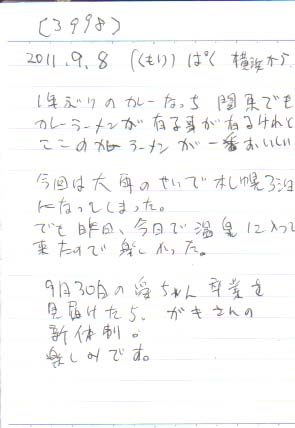 〔3998〕
2011.9.8 (くもり) ぱく 横浜から
1年ぶりのカレーなっち 関東でも
カレーラーメンが有る事が有るけれど
ここのカレーラーメンが一番おいしい
今回は大雨のせいで札幌3泊
になってしまった。
でも昨日、今日で温泉に入って
来たので楽しかった。
9月30日の愛ちゃん卒業を
見届けたら、がきさんの
新体制。
楽しみです。